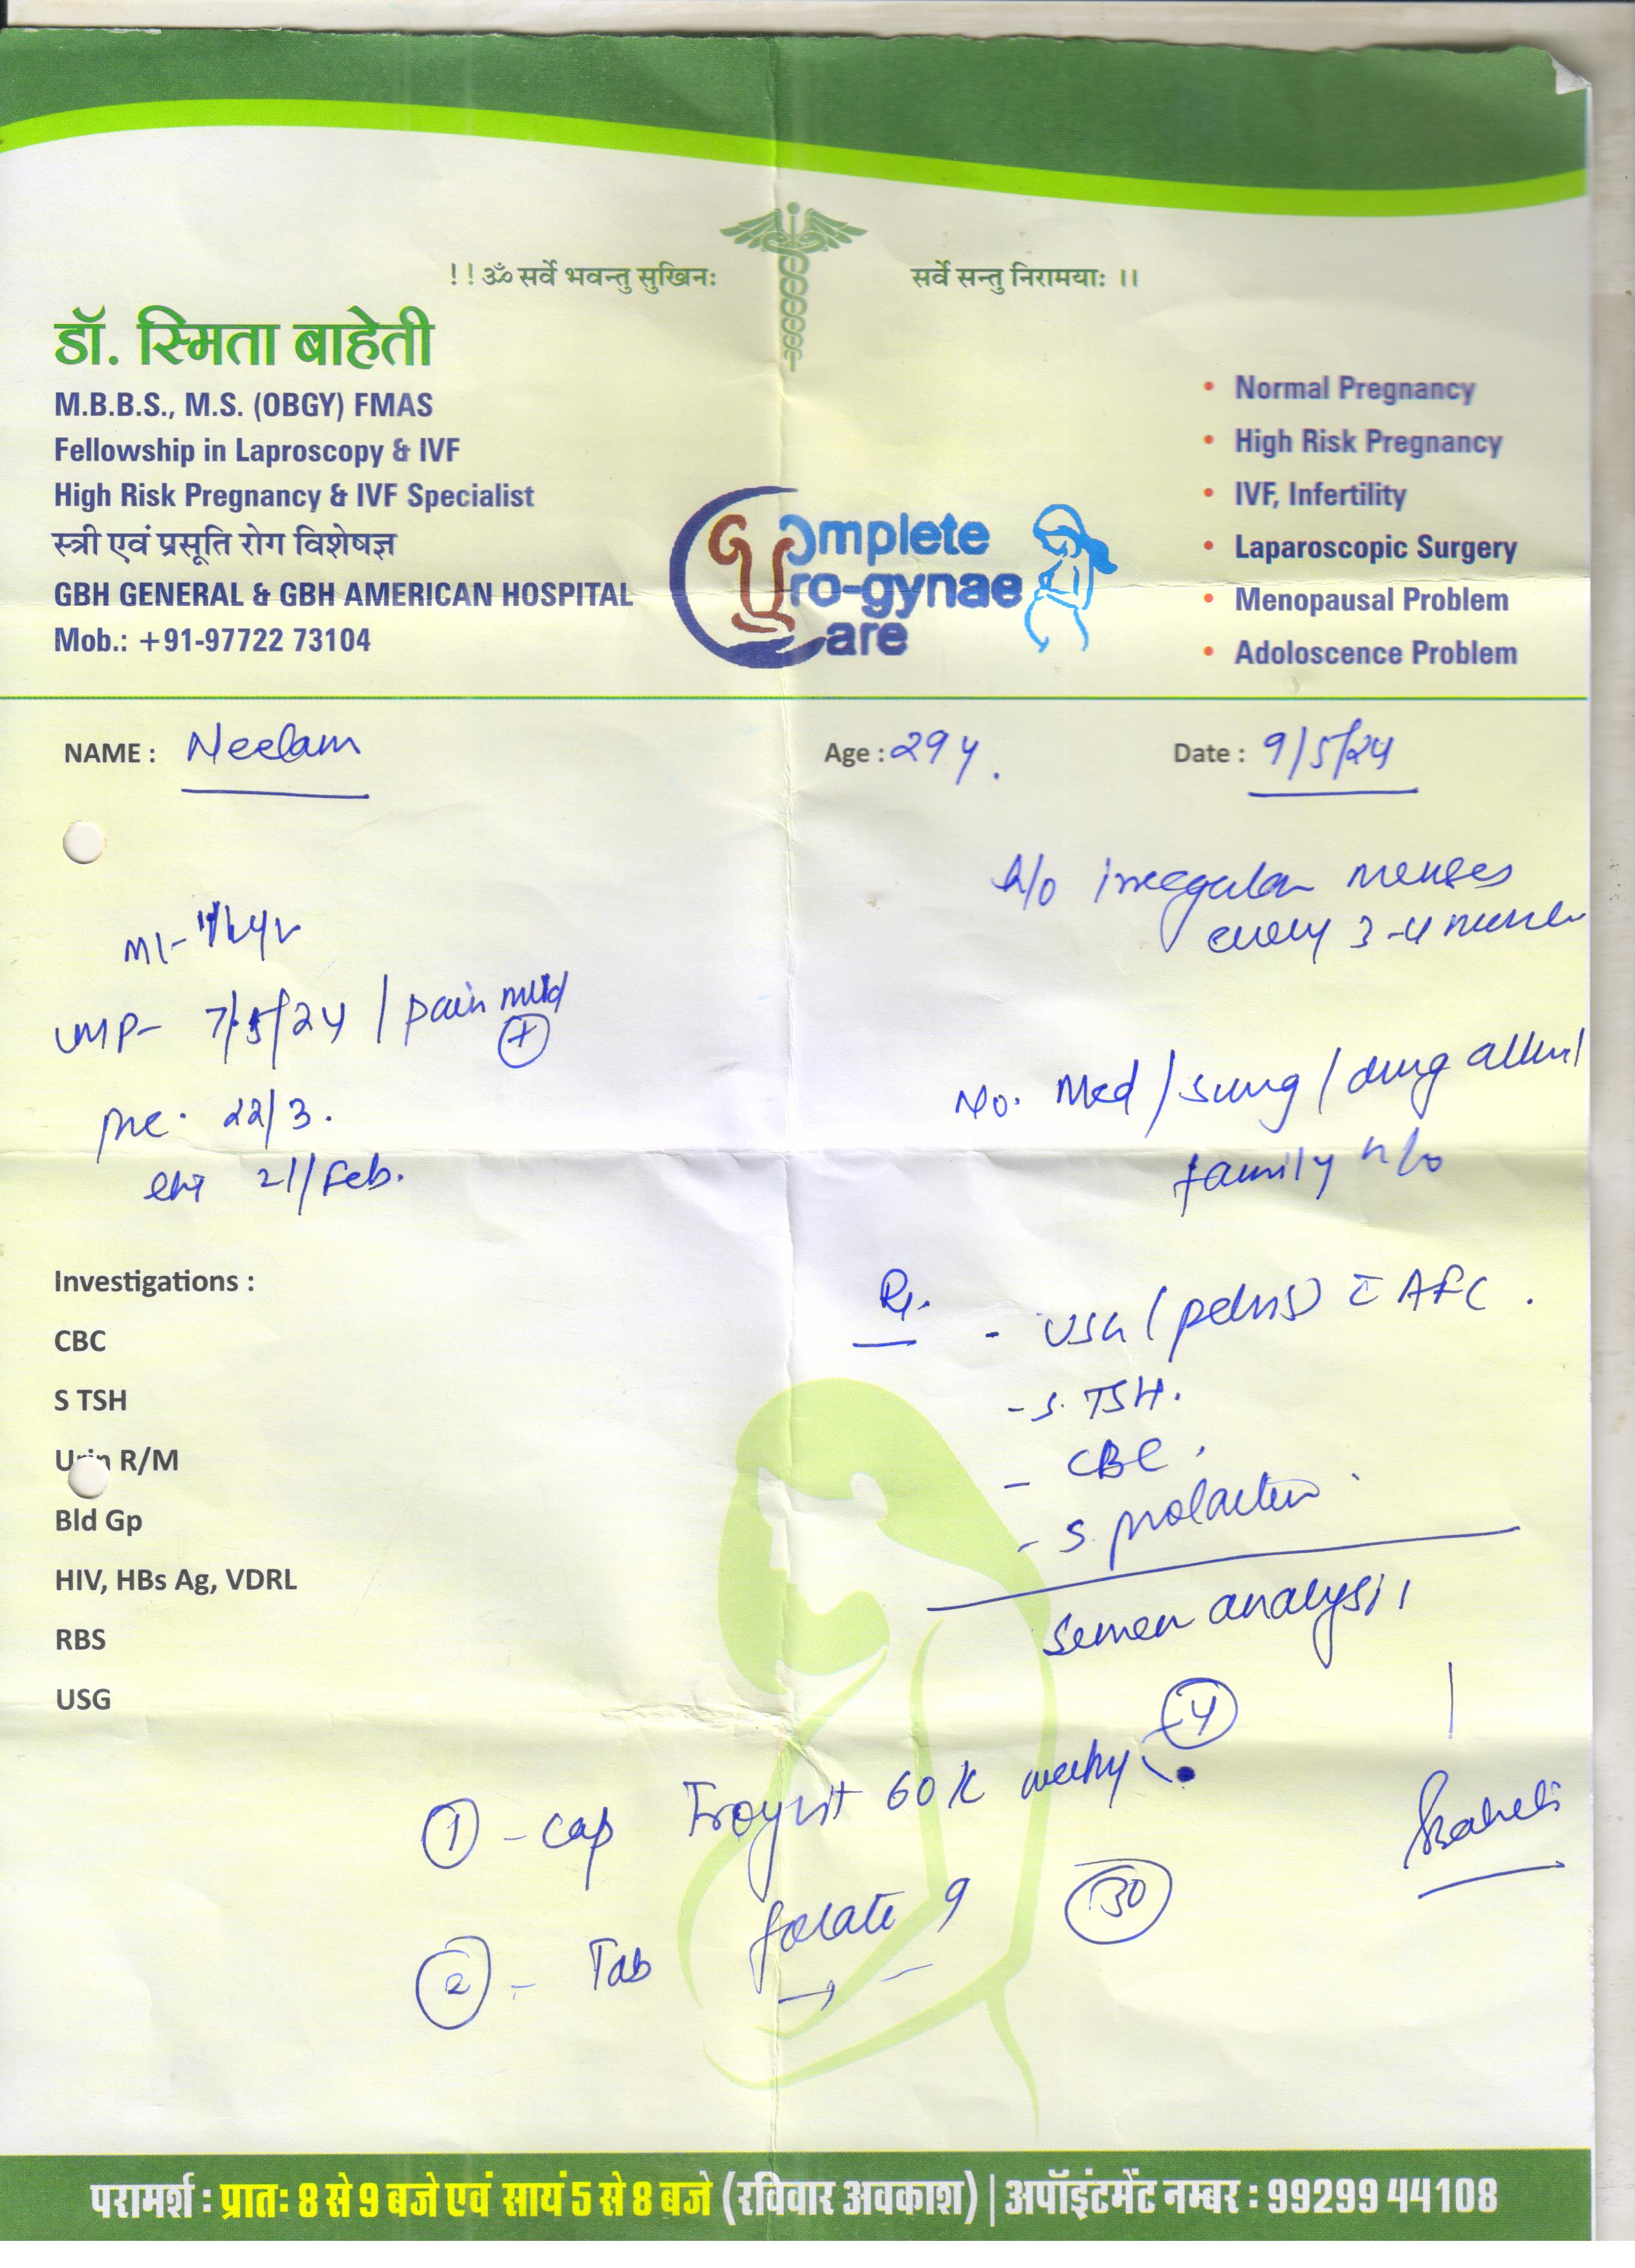 !! ॐ सर्वे भवन्तु सुखिनः सर्वे सन्तु निरामयाः ।।
डॉ. स्मिता बाहेती
M.B.B.S., M.S. (OBGY) FMAS
Fellowship in Laproscopy & IVF
High Risk Pregnancy & IVF Specialist
स्त्री एवं प्रसूति रोग विशेषज्ञ
GBH GENERAL & GBH AMERICAN HOSPITAL
Mob.: +91-97722 73104
Complete
Uro-gynae
Care
• Normal Pregnancy
• High Risk Pregnancy
• IVF, Infertility
• Laparoscopic Surgery
• Menopausal Problem
• Adoloscence Problem
NAME : Neelam Age : 29 y. Date : 9/5/24
h/o irregular menses
every 3-4
LMP- 7/5/24 / pain mild +
pre. 22/3.
21/Feb.
No. Med / surg / drug
family h/o
Investigations :
CBC
S TSH
Urin R/M
Bld Gp
HIV, HBs Ag, VDRL
RBS
USG
Rx.
- USG (pelvis) c̄ AFC.
- S. TSH.
- CBC.
- S. prolactin
semen analysis
1 - cap 60 K weekly 4
2 - Tab folate 9 30
परामर्श : प्रातः 8 से 9 बजे एवं सायं 5 से 8 बजे (रविवार अवकाश) | अपॉइंटमेंट नम्बर : 99299 44108